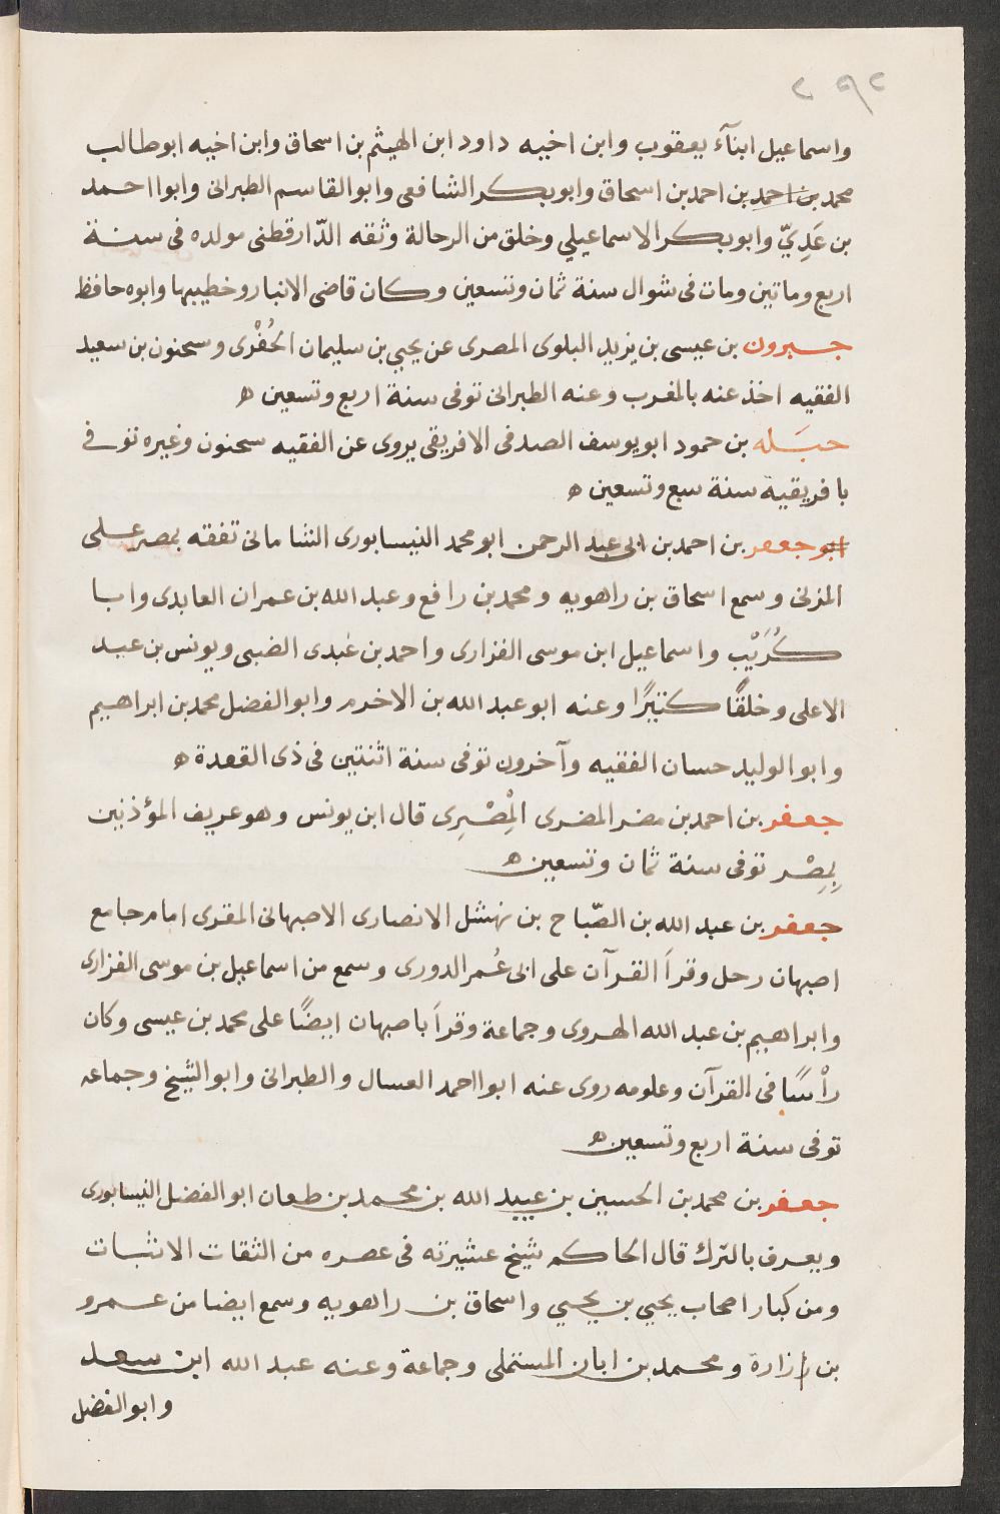 ٢٩٢
واسماعيل ابنآء يعقوب وابن اخيه داود ابن الهيثم بن اسحاق وابن اخيه ابوطالب
محمد بن احمد بن احمد بن اسحاق وابوبكر الشافعى وابوالقاسم الطبرانى وابوااحمد
بن عَدِىّ وابوبكر الاسماعيلي وخلق من الرحالة وثقه الدّارقطنى مولده فى سنة
اربع وماتين ومات فى شوال سنة ثمان وتسعين وكان قاضى الانبار وخطيبها وابوه حافظ
جبرون بن عيسى بن يزيد البلوى المصرى عن يحيى بن سليمان الحُفْرى وسحنون بن سعيد
الفقيه اخذ عنه بالمغرب وعنه الطبرانى توفى سنة اربع وتسعين ه
حبَله بن حمود ابويوسف الصدفى الافريقى يروى عن الفقيه سحنون وغيره توفى
بافريقية سنة سبع وتسعين ه
ابو جعفر بن احمد بن ابى عبد الرحمن ابو محمد النيسابورى الشاماتى تفقه بمصر على
المزنى وسمع اسحاق بن راهويه ومحمد بن رافع وعبد الله بن عمران العابدى وابا
كُرَيْب واسماعيل ابن موسى الفزارى واحمد بن عَبدى الضبى ويونس بن عبد
الاعلى وخلقًا كثيرًا وعنه ابو عبد الله بن الاخرم وابوالفضل محمد بن ابراهيم
وابوالوليد حسان الفقيه وآخرون توفى سنة اثنتين فى ذى القعدة ه
جعفر بن احمد بن مضر المضرى الْمِصْرِى قال ابن يونس وهو عريف المؤذنين
بِمِصْر توفى سنة ثمان وتسعين ه
جعفر بن عبد الله بن الصّباح بن نهشل الانصارى الاصبهانى المقرى امام جامع
اصبهان رحل وقرأ القرآن على ابى عُمر الدورى وسمع من اسماعيل بن موسى الفزارى
وابراهيم بن عبد الله الهروى وجماعة وقرأ باصبهان ايضًا على محمد بن عيسى وكان
رأسًا فى القرآن وعلومه روى عنه ابوااحمد العسال والطبرانى وابوالشيخ وجماعه
توفى سنة اربع وتسعين ه
جعفر بن محمد بن الحسين بن عبيد الله بن محمد بن طعان ابوالفضل النيسابورى
ويعرف بالترك قال الحاكم شيخ عشيرته فى عصره من الثقات الاثبات
ومن كبار اصحاب يحيى بن يحيى واسحاق بن راهويه وسمع ايضا من عمرو
بن زرارة ومحمد بن ابان المستملى وجماعة وعنه عبد الله ابن سعد
وابوالفضل